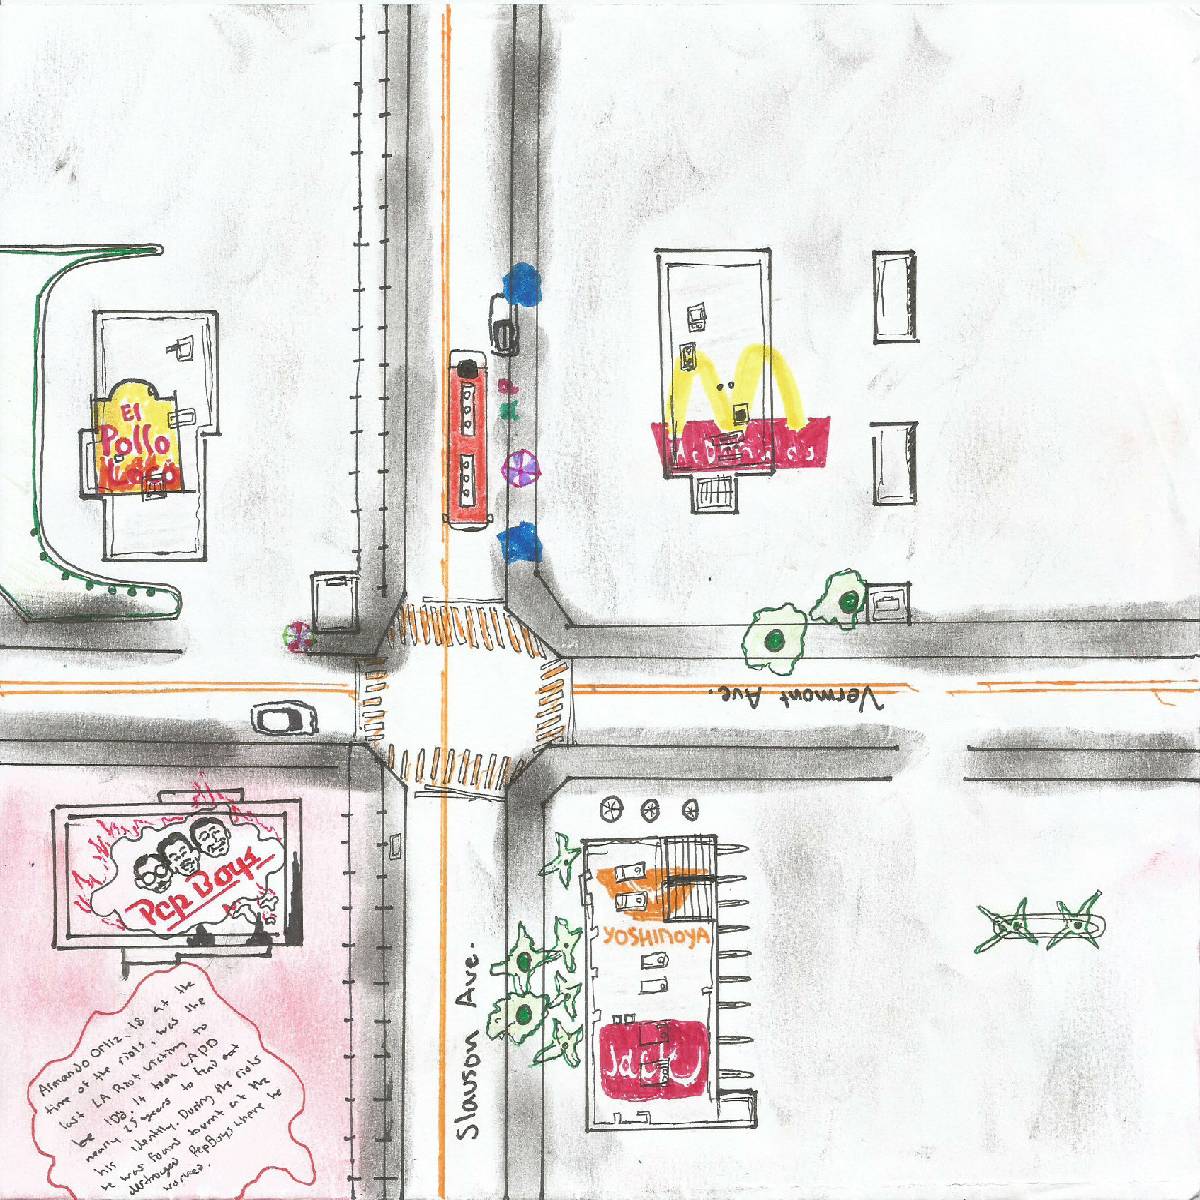 El
Pollo
Loco
McDonalds
Vermont Ave.
Pep Boys
YOSHINOYA
Slauson Ave.
Jack
Armando Ortiz, 18 at the
time of the riots, was the
last LA Riot victim to
be IDD. It took LAPD
nearly 25 years to find out
his identity. During the riots
he was found burnt at the
destroyed PepBoys where he
worked.